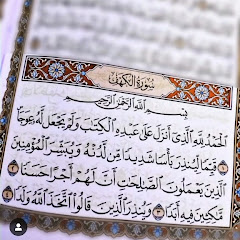 سُورَةُ الكَهْفِ
بِسْمِ اللَّهِ الرَّحْمَٰنِ الرَّحِيمِ
الْحَمْدُ لِلَّهِ الَّذِي أَنزَلَ عَلَىٰ عَبْدِهِ الْكِتَٰبَ وَلَمْ يَجْعَل لَّهُ عِوَجًا ١
قَيِّمًا لِّيُنذِرَ بَأْسًا شَدِيدًا مِّن لَّدُنْهُ وَيُبَشِّرَ الْمُؤْمِنِينَ
الَّذِينَ يَعْمَلُونَ الصَّٰلِحَٰتِ أَنَّ لَهُمْ أَجْرًا حَسَنًا ٢
مَّٰكِثِينَ فِيهِ أَبَدًا ٣ وَيُنذِرَ الَّذِينَ قَالُوا اتَّخَذَ اللَّهُ وَلَدًا ٤